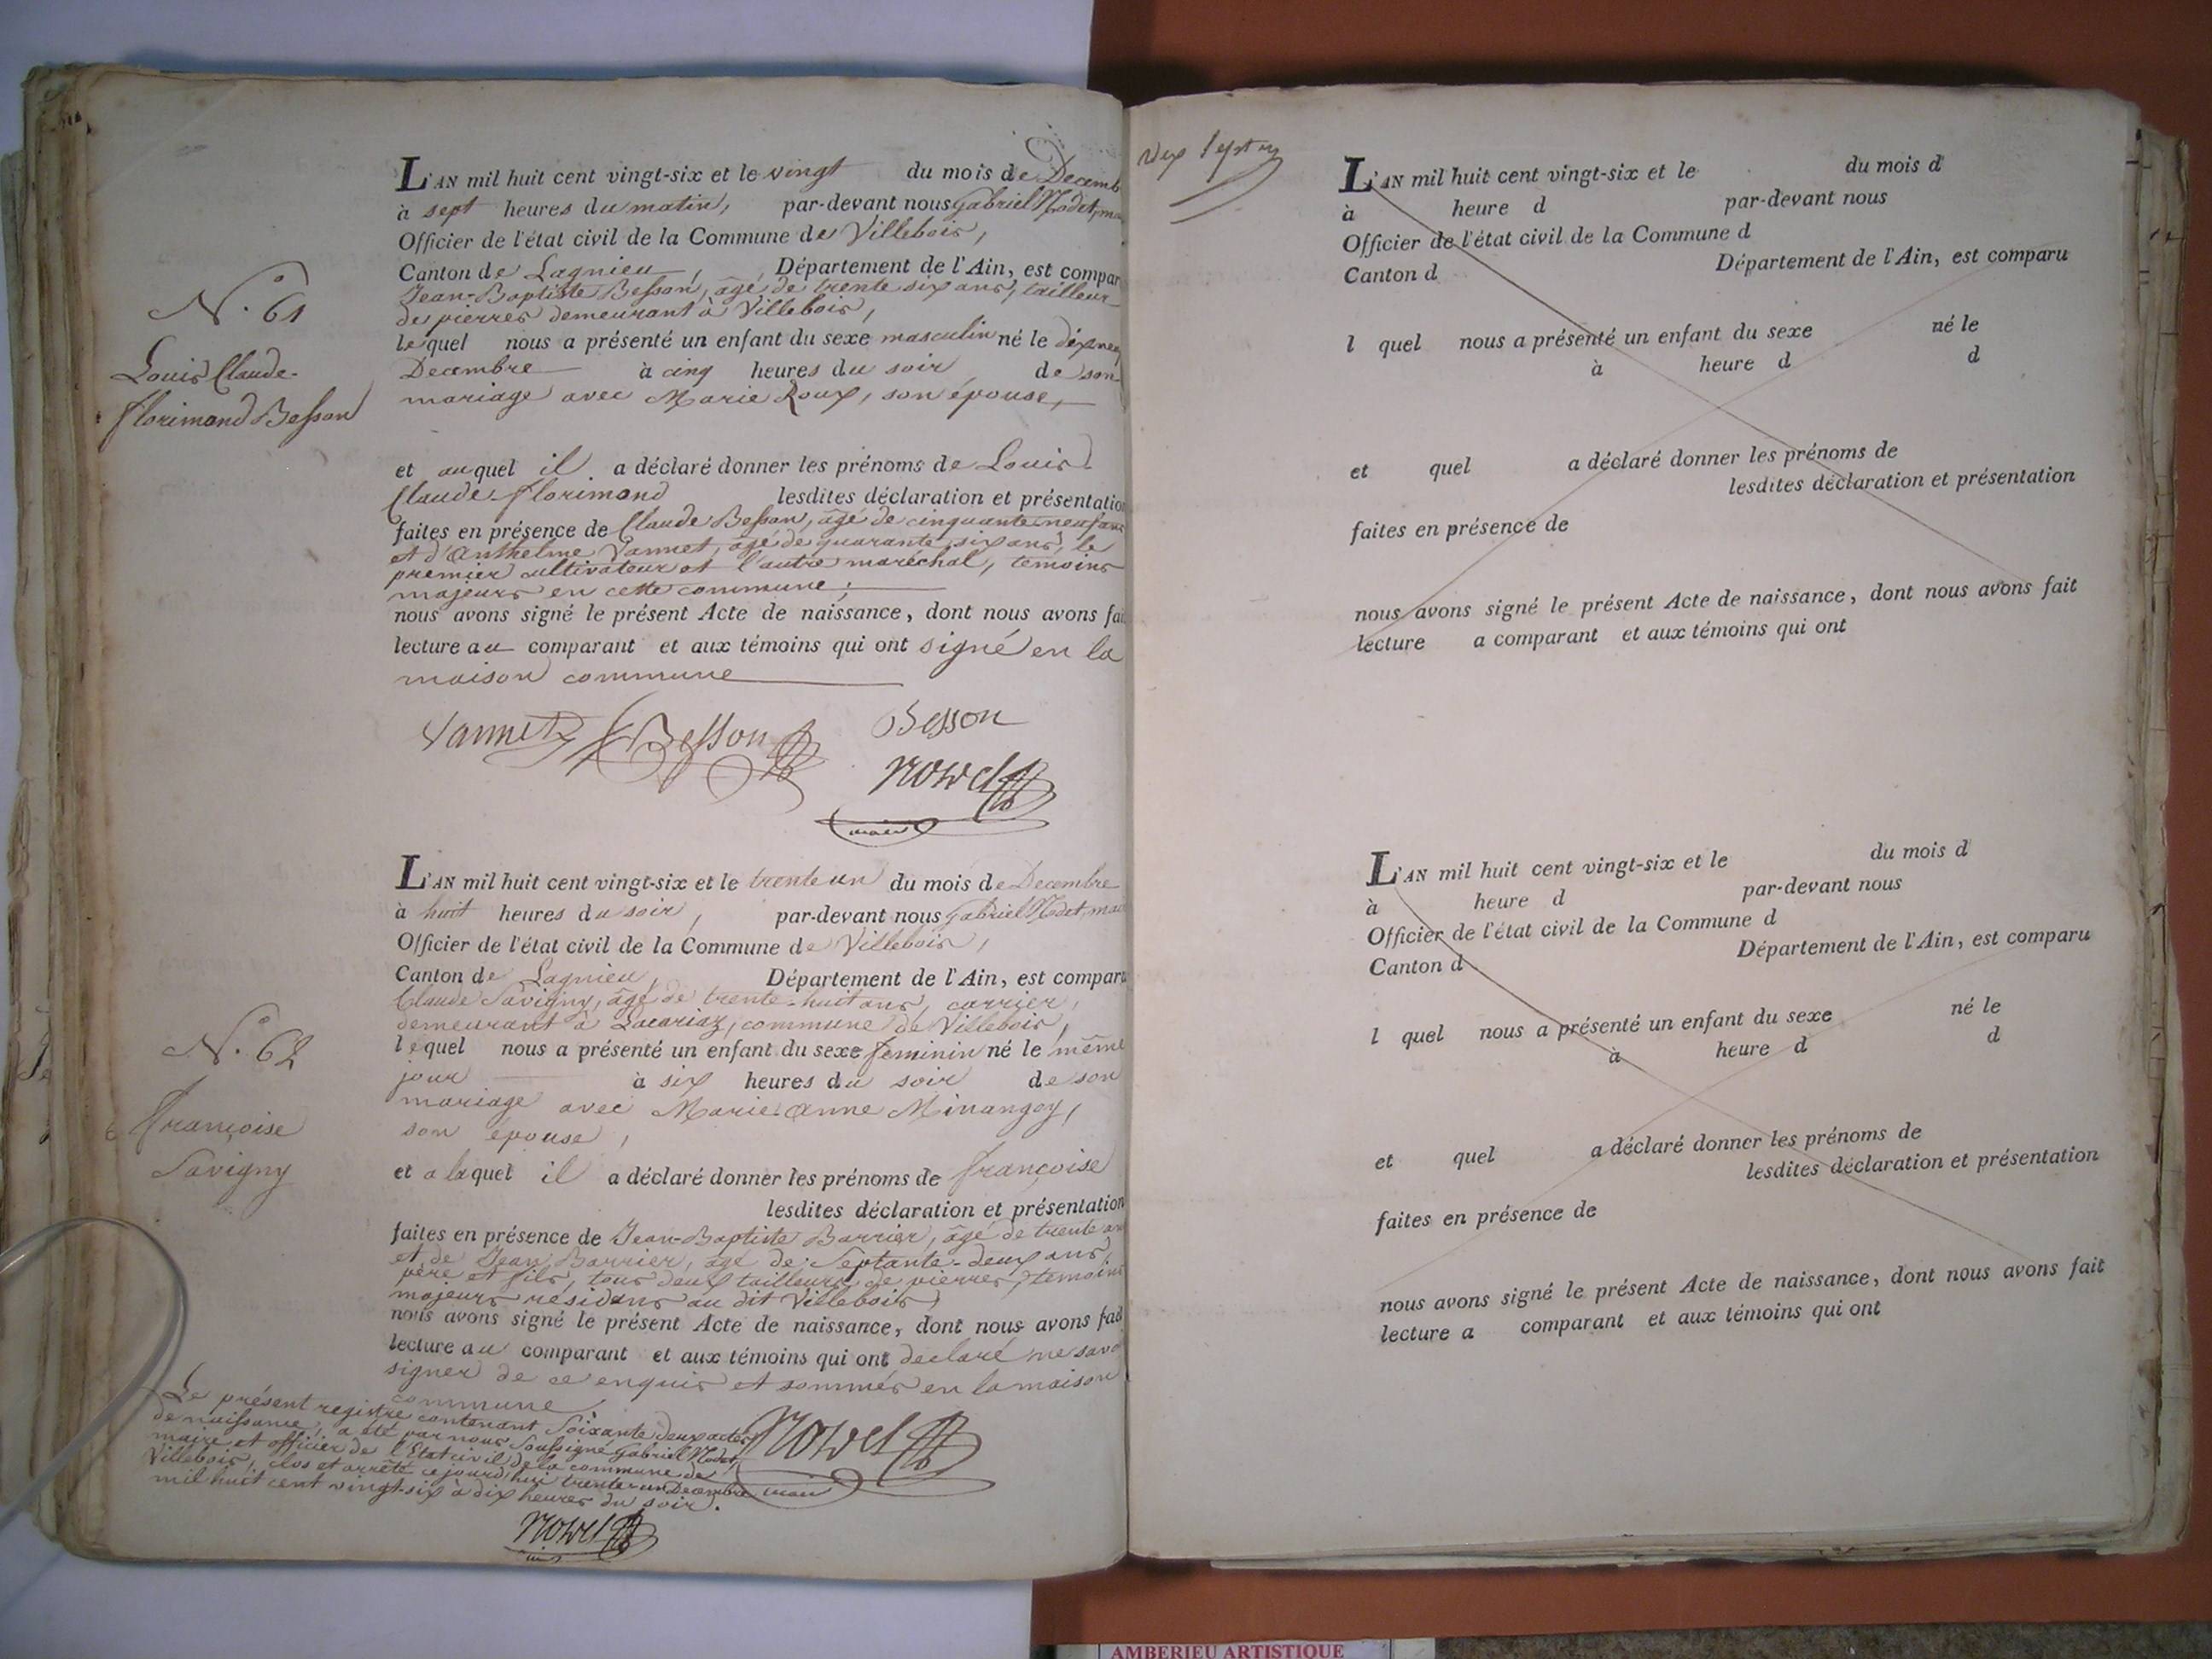 L'AN mil huit cent vingt-six et le vingt du mois de Decemb
à sept heures du matin, par-devant nous Gabriel Nodet, ma
Officier de l'état civil de la Commune de Villebois,
Canton de Lagnieu, Département de l'Ain, est compar
Jean-Baptiste Besson, âgé de trente six ans, tailleur
de pierres demeurant à Villebois,
N.° 61
lequel nous a présenté un enfant du sexe masculin né le dixneuf
Louis Claude-
Decembre à cinq heures du soir de son
florimond Besson
mariage avec Marie Roux, son épouse,
et auquel il a déclaré donner les prénoms de Louis
Claude-florimond lesdites déclaration et présentation
faites en présence de Claude Besson, âgé de cinquante neuf ans
et d'Anthelme Vannet, âgé de quarante six ans, le
premier cultivateur et l'autre maréchal, temoins
majeurs en cette commune;
nous avons signé le présent Acte de naissance, dont nous avons fai
lecture au comparant et aux témoins qui ont signé en la
maison commune
Vannet Besson Besson
Nodet
maire
L'AN mil huit cent vingt-six et le trente un du mois de Decembre
à huit heures du soir, par-devant nous Gabriel Nodet, mai
Officier de l'état civil de la Commune de Villebois,
Canton de Lagnieu, Département de l'Ain, est comparu
Claude Savigny, âgé de trente-huit ans, carrier,
demeurant à Lacariaz, commune de Villebois,
N.° 62
lequel nous a présenté un enfant du sexe feminin né le même
jour à six heures du soir de son
françoise
Savigny
mariage avec Marie-anne Minangoy,
son epouse,
et a laquel il a déclaré donner les prénoms de françoise
lesdites déclaration et présentation
faites en présence de Jean-Baptiste Barrier, âgé de trente an
et de Jean Barrier, âgé de Septante-deux ans,
père et fils, tous deux tailleurs de pierres, temoins
majeurs résidans au dit Villebois,
nous avons signé le présent Acte de naissance, dont nous avons fait
lecture au comparant et aux témoins qui ont declaré ne savoi
signer de ce enquis et sommés en la maison
commune,
Le présent registre contenant Soixante deux actes
de naissance, a été par nous Soussigné Gabriel Nodet,
maire et officier de l'Etat civil de la commune de
Villebois, clos et arrêté ce jourd'hui trente un Decembre
mil huit cent vingt-six à dix heures du soir.
Nodet
maire
Nodet
L'AN mil huit cent vingt-six et le du mois d
à heure d par-devant nous
Officier de l'état civil de la Commune d
Canton d Département de l'Ain, est comparu
l quel nous a présenté un enfant du sexe né le
à heure d d
et quel a déclaré donner les prénoms de
lesdites déclaration et présentation
faites en présence de
nous avons signé le présent Acte de naissance, dont nous avons fait
lecture a comparant et aux témoins qui ont
L'AN mil huit cent vingt-six et le du mois d
à heure d par-devant nous
Officier de l'état civil de la Commune d
Canton d Département de l'Ain, est comparu
l quel nous a présenté un enfant du sexe né le
à heure d d
et quel a déclaré donner les prénoms de
lesdites déclaration et présentation
faites en présence de
nous avons signé le présent Acte de naissance, dont nous avons fait
lecture a comparant et aux témoins qui ont
AMBERIEU ARTISTIQUE